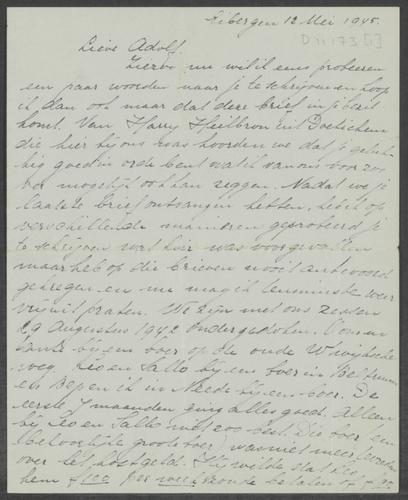 Eibergen 12 Mei 1945.
D 11173 [1]
Lieve Adolf,
Hierbij nu wil ik eens probeeren
een paar woorden naar je te schrijven en hoop
ik dan ook maar dat deze brief in je bezit
komt. Van Harry Heilbron uit Doetichem
die hier bij ons was hoorden we dat je geluk-
kig goed in orde bent wat ik van ons voor zoo
ver mogelijk ook kan zeggen. Nadat we je
laatste brief ontvangen hebben, heb ik op
verschillende manieren geprobeerd je
te schrijven wat hier was voorgevallen
maar heb op die brieven nooit antwoord
gekregen en nu mag ik tenminste weer
vrijuit praten. We zijn met ons zessen
29 Augustus 1942 ondergedoken. Oom en
tante bij een boer op de oude W
weg. Leo en Sallo bij een boer in Beltrum
en Bep en ik in Neede bij een boer. De
eerste 7 maanden ging alles goed. Alleen
bij Leo en Sallo niet zoo best. Die boer een
(beloofelijk groote boer) was niet meer tevreden
over het kostgeld. Hij wilde dat Leo
hem f 100 per week zoude betalen of